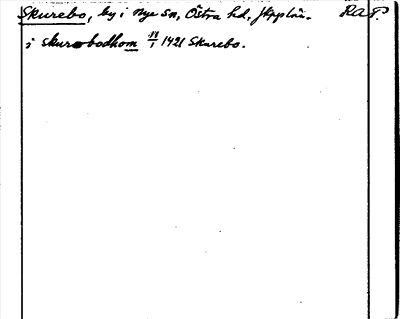 Skurebo, by i Nye sn, Östra hd, Jkpg län. RA P.
i skurobodhom 11/1 1421 Skurebo.